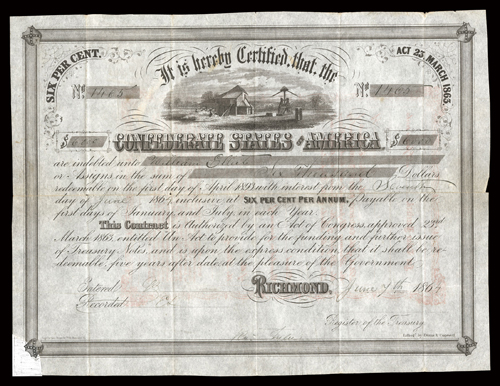 SIX PER CENT.
It is hereby Certified, that the
ACT 23 MARCH 1863.
No 1405
No 1405
CONFEDERATE STATES OF AMERICA
are indebted unto William
or Assigns in the sum of Thousand Dollars
redeemable on the first day of April 1893 with interest from the Seventh
day of June 186 inclusive at SIX PER CENT PER ANNUM, Payable on the
first days of January, and July, in each Year.
This Contract is Authorized by an Act of Congress, approved 23rd
March 1863, entitled An Act to provide for the funding and further issue
of Treasury Notes, and is upon the express condition that it shall be re-
deemable, five years after date at the pleasure of the Government.
Entered
Recorded
RICHMOND, June 7th 186
Register of the Treasury